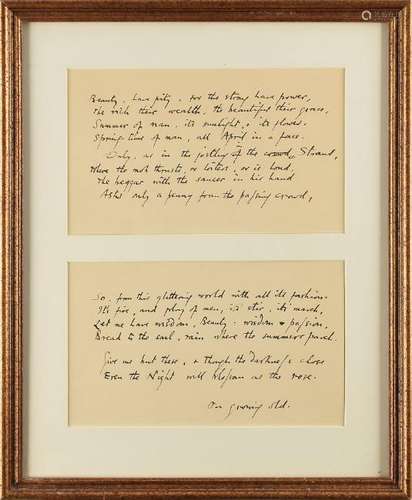 Beauty, have pity, for the strong have power,
The rich their wealth, the beautiful their grace,
Summer of man, its sunlight & its flower.
Spring time of man, all April in a face.
Only, as in the jostling of the crowd, Strand,
Where the mob thrusts, or loiters, or is loud,
The beggar with the saucer in his hand
Asks only a penny from the passing crowd,
So, from this glittering world with all its fashion
Its fire, and play of men, its stir, its march,
Let me have wisdom, Beauty, wisdom & passion,
Bread to the soul, rain where the summers parch.
Give me but these, & though the Darkness close
Even the Night will blossom as the rose.
On growing old.